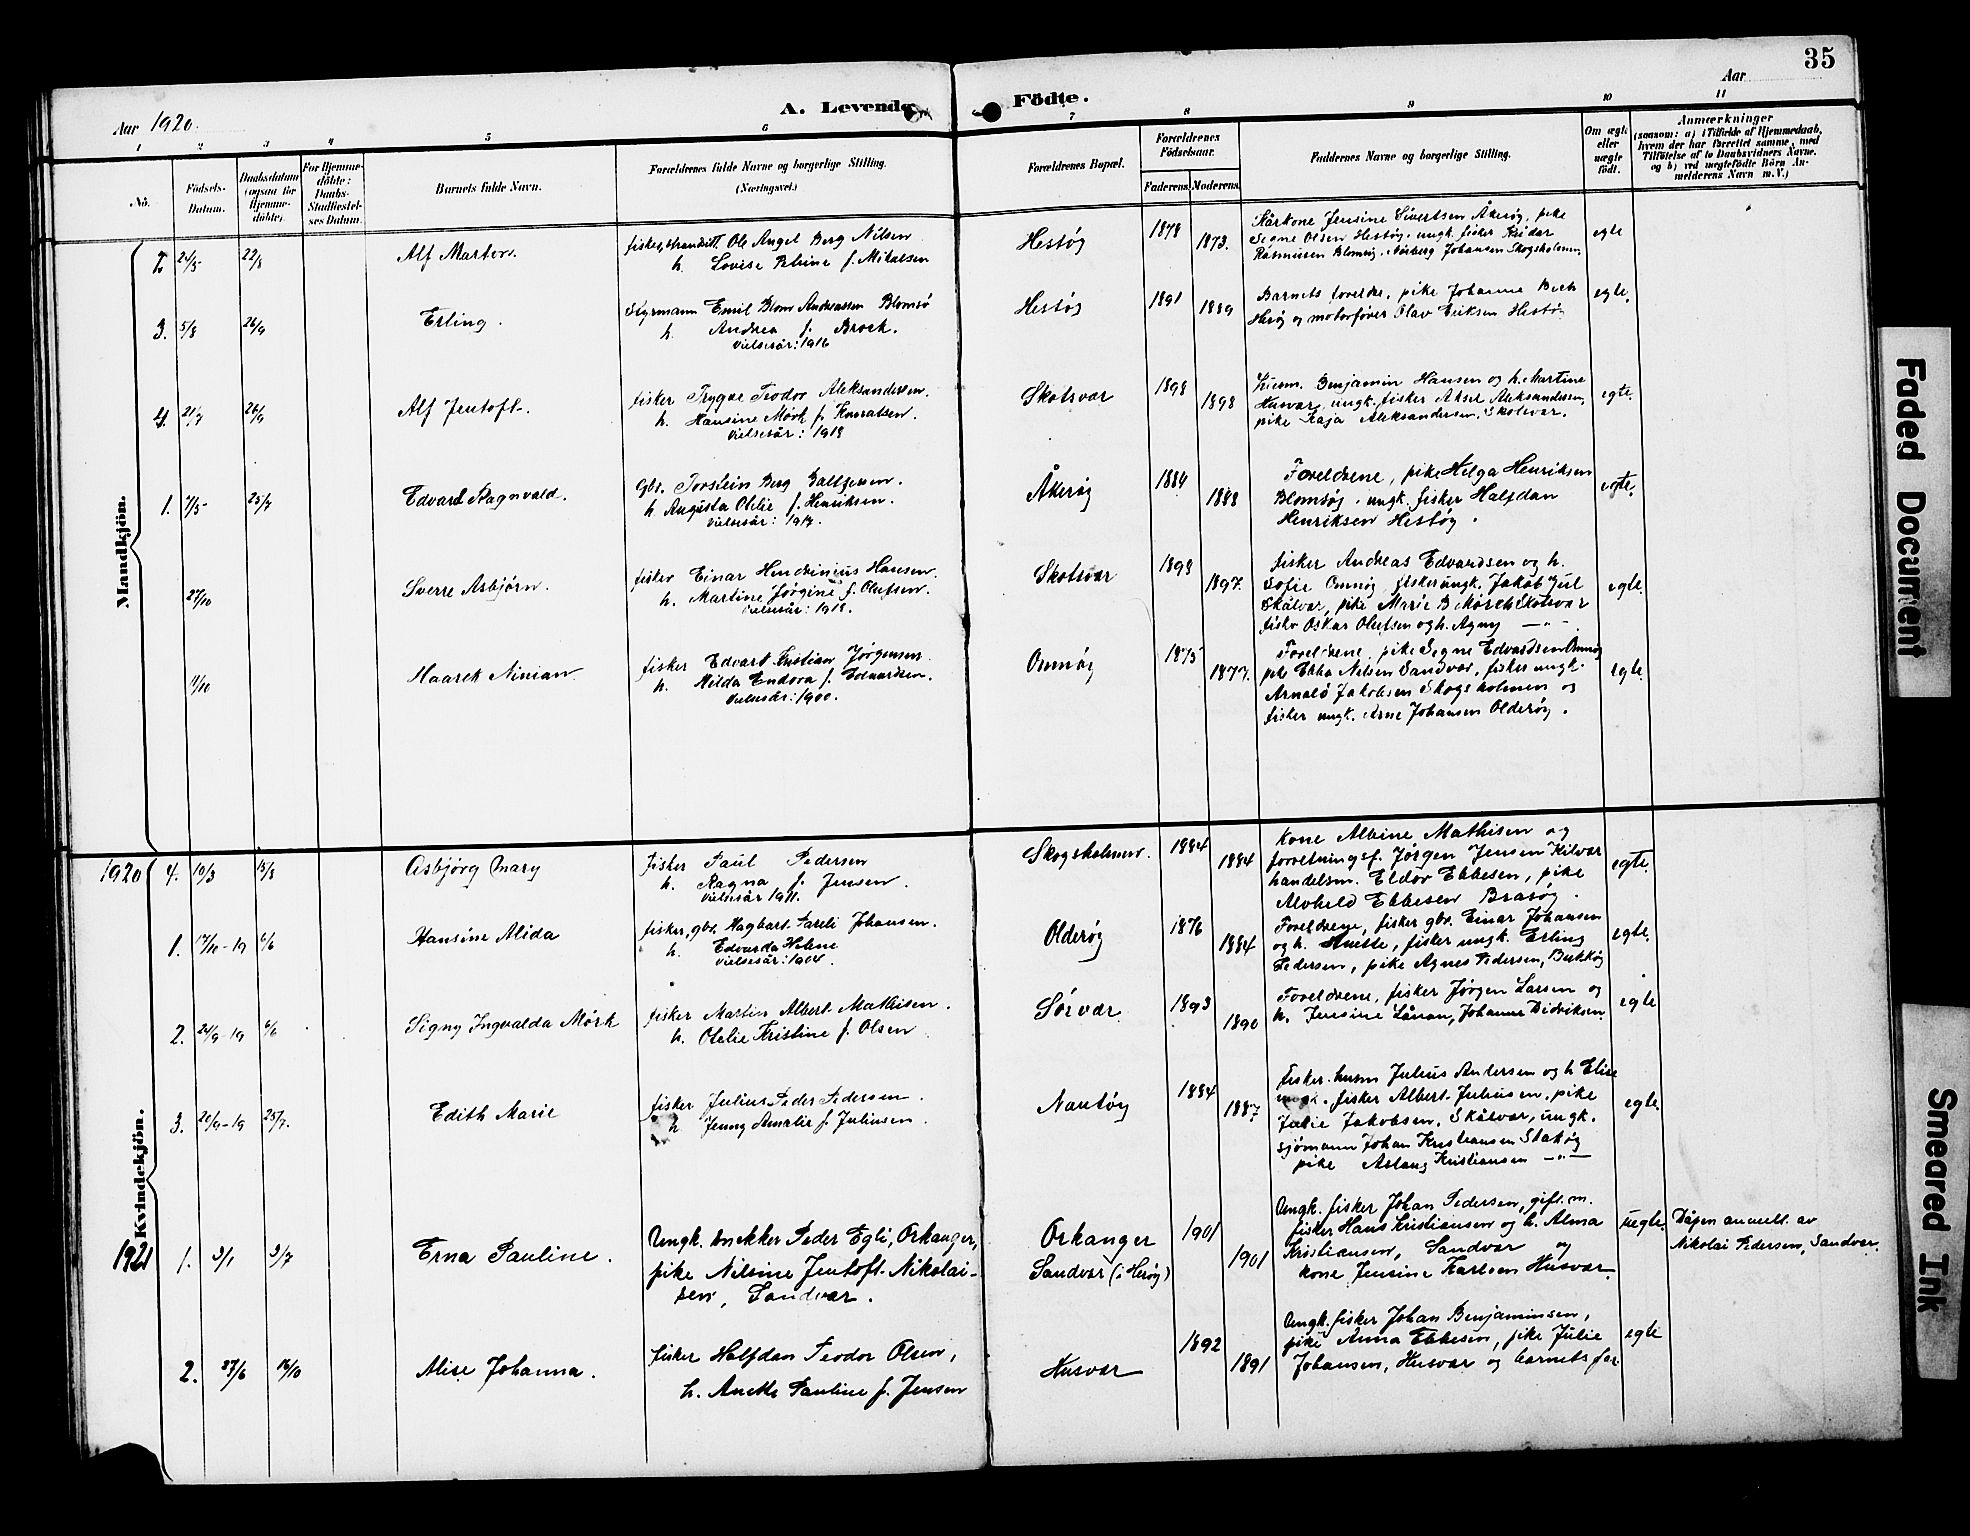 35
Aar 1920.
A. Levende Födte.
Aar
1 2 3 4 5 6 7 8 9 10 11
No.
Födsels-Datum.
Daabsdatum (ogsaa for Hjemmedöbte)
For Hjemmedöbte: Daabs-Stadfæstelses Datum.
Barnets fulde Navn.
Forældrenes fulde Navne og borgerlige Stilling. (Næringsvei.)
Forældrenes Bopæl.
Forældrenes Födselsaar.
Faderens Moderens
Faddernes Navne og borgerlige Stilling.
Om ægte eller uægte födt.
Anmærkninger
(saasom: a) i Tilfælde af Hjemmedaab, hvem der har forrettet samme, med Tilföielse af to Daabsvidners Navne. og b) ved uegtefödte Börn Anmelderens Navn m.V.)
Mandkjön.
2. 24/5 22/8 Alf Marten. Ole Angel Berg Nilsen Hestøy 1878 1873. Kårkone Jensine Sivertsen Åkerøy, pike
h. Lovise f. Mikalsen Signe Olsen Hestøy, ungk. fisker egte
Rasmussen Johansen Skogsholmen.
3. 5/8 26/9 Erling. Styrmann Emil Blom Andreassen Blomsø Hestøy 1891 1889 Barnets foreldre, pike Johanne
h. Andrea f. Brock. Herøy og motorfører Olav Eriksen Hestøy egte.
Vielsesår: 1916
4. 21/7 26/9 Alf Jentoft. fisker Trygve Teodor Aleksandersen. Skotsvær 1898 1898 Benjamin Hansen og h. Martine
h. Hansine Mørk f. Konradsen. Husvær, ungk. fisker Aksel Aleksandersen, egte.
Vielsesår: 1918 pike Kaja Aleksandersen, Skotsvær.
1. 7/5 25/7 Edvard Ragnvald. Gbr. Torstein Berg Baltzersen. Åkerøy 1884 1888 Foreldrene, pike Helga Henriksen
h. Augusta Otelie f. Henriksen. Blomsøy, ungk. fisker Halfdan egte.
Vielsesår: 1917. Henriksen Hestøy.
27/10 Sverre Asbjørn. fisker Einar Hendrinius Hansen. Skotsvær 1893 1897. fisker Andreas Edvardsen og h.
h. Martine Jørgine f. Olufsen. Sofie Omnøy, fisker ungk. Jakob Jul egte.
Vielsesår: 1918. Skålvær, pike Marie B. Mørch Skotsvær
fisker Oskar Olufsen og h. Agny — " —
11/10 Haarek Ninian fisker Edvart Kristian Jørgensen. Omnøy 1875 1877. Foreldrene, pike Signe Edvardsen Omnøy
h. Hilda Endora f. Edvardsen. pike Ebba Nilsen Sandvær, fisker ungk. egte.
Vielsesår: 1900. Arnold Jakobsen Skogsholmen og
fisker ungk. Arne Johansen Olderøy.
Kvindekjön.
1920 4. 10/3 15/8 Asbjörg Mary fisker Paul Pedersen Skogsholmen. 1884 1884 Kone Albine Mathisen og
h. Ragna f. Jensen. forretningsf. Jørgen Jensen Kilvær egte.
Vielsesår 1911. handelsm. Eldor Ebbesen, pike
Alvhild Ebbesen Brasøy.
1. 17/10-19 6/6 Hansine Alida fisker, gbr. Hagbart Pareli Johansen. Olderøy 1876 1884 Foreldrene, fisker gbr. Einar Johansen
h. Edvarda Helene og h. Anette, fisker ungk. Erling egte.
Vielsesår: 1904. Pedersen, pike Agnes Pedersen, Bukkøy
2. 24/9-19 6/6 Signy Ingvalda Mørk fisker Martin Albert Mathisen. Sörvær 1893 1890 Foreldrene, fisker Jørgen Larsen og
h. Otelie Kristine f. Olsen h. Jensine Lånan, Johanne Didriksen. egte
3. 20/9-19 25/7. Edith Marie fisker Julius Peder Pedersen. Nautøy 1884 1887 fisker husm Julius Andersen og h Elise
h Jenny Amalie f. Juliussen. ungk. fisker Albert Juliussen, pike
Julie Jakobsen, Skålvær, ungk. egte.
sjømann Johan Kristiansen Stokøy
pike Aslaug Kristiansen — " —
1921 1. 3/1 3/7 Erna Pauline. Ungk. snekker Peder Egli, Orkanger, Orkanger 1901 1901 Ungk. fisker Johan Pedersen, gift m.
pike Nilsine Jentoft Nikolai- Sandvær (i Herøy) fisker Hans Kristiansen og h. Alma uegte. Dåpen anmelt av
sen, Sandvær. Kristiansen, Sandvær og Nikolai Pedersen, Sandvær.
kone Jensine Karlsen Husvær.
2. 27/6 16/10 Alise Johanna. fisker Halfdan Teodor Olsen, Husvær 1892 1891 Ungk. fisker Johan Benjaminsen,
h. Anette Pauline f. Jensen pike Anna Ebbesen, pike Julie egte
Johansen, Husvær og barnets far
Faded Document
Smeared Ink